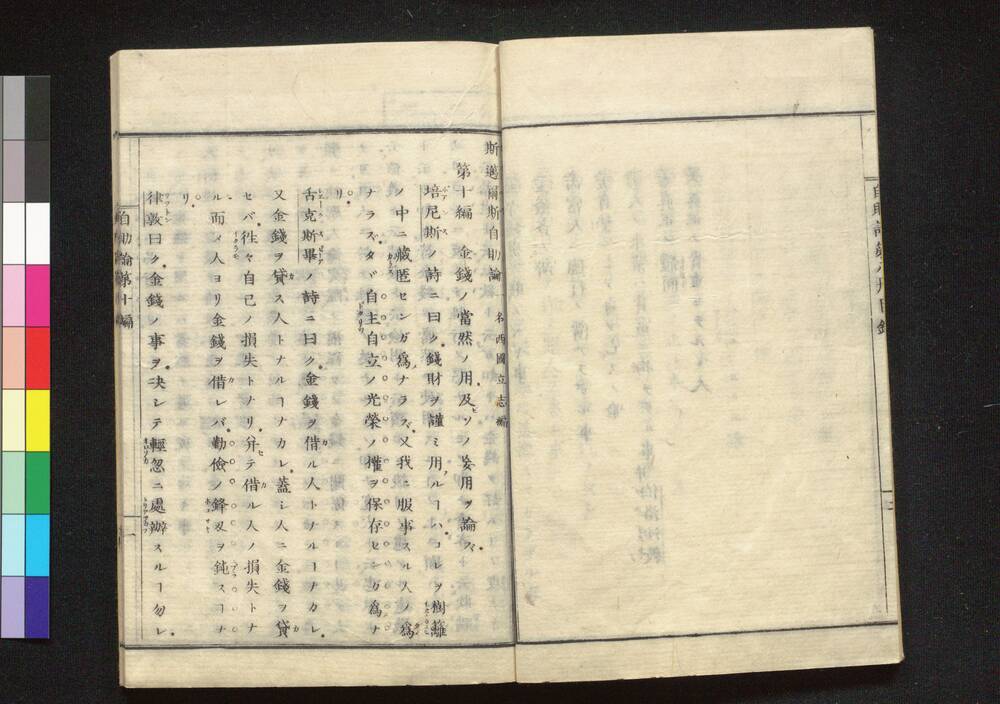 斯邁爾斯自助論 一名西國立志編
第十編 金錢ノ當然ノ用及ビソノ妄用ヲ論ズ
培尼斯ノ詩ニ曰ク錢財ヲ謹ミ用フルヿハコレヲ樹籬
ノ中ニ藏匿センガ爲ナラズ又我ニ服事スル人ノ爲
ナラズタヾ自主自立ノ光榮ノ權ヲ保存センガ爲ナ
リ
舌克斯畢ノ詩ニ曰ク金錢ヲ借ル人トナルヿナカレ
又金錢ヲ貸ス人トナルヿナカレ蓋シ人ニ金錢ヲ貸
セバ徃々自己ノ損失トナリ幷テ借ル人ノ損失トナ
ル而シテ人ヨリ金錢ヲ借レバ勤儉ノ鋒刄ヲ鈍スヿナ
リ
律敦曰ク金錢ノ事ヲ决シテ輕忽ニ處辦スルヿ勿レ
自助論第十編